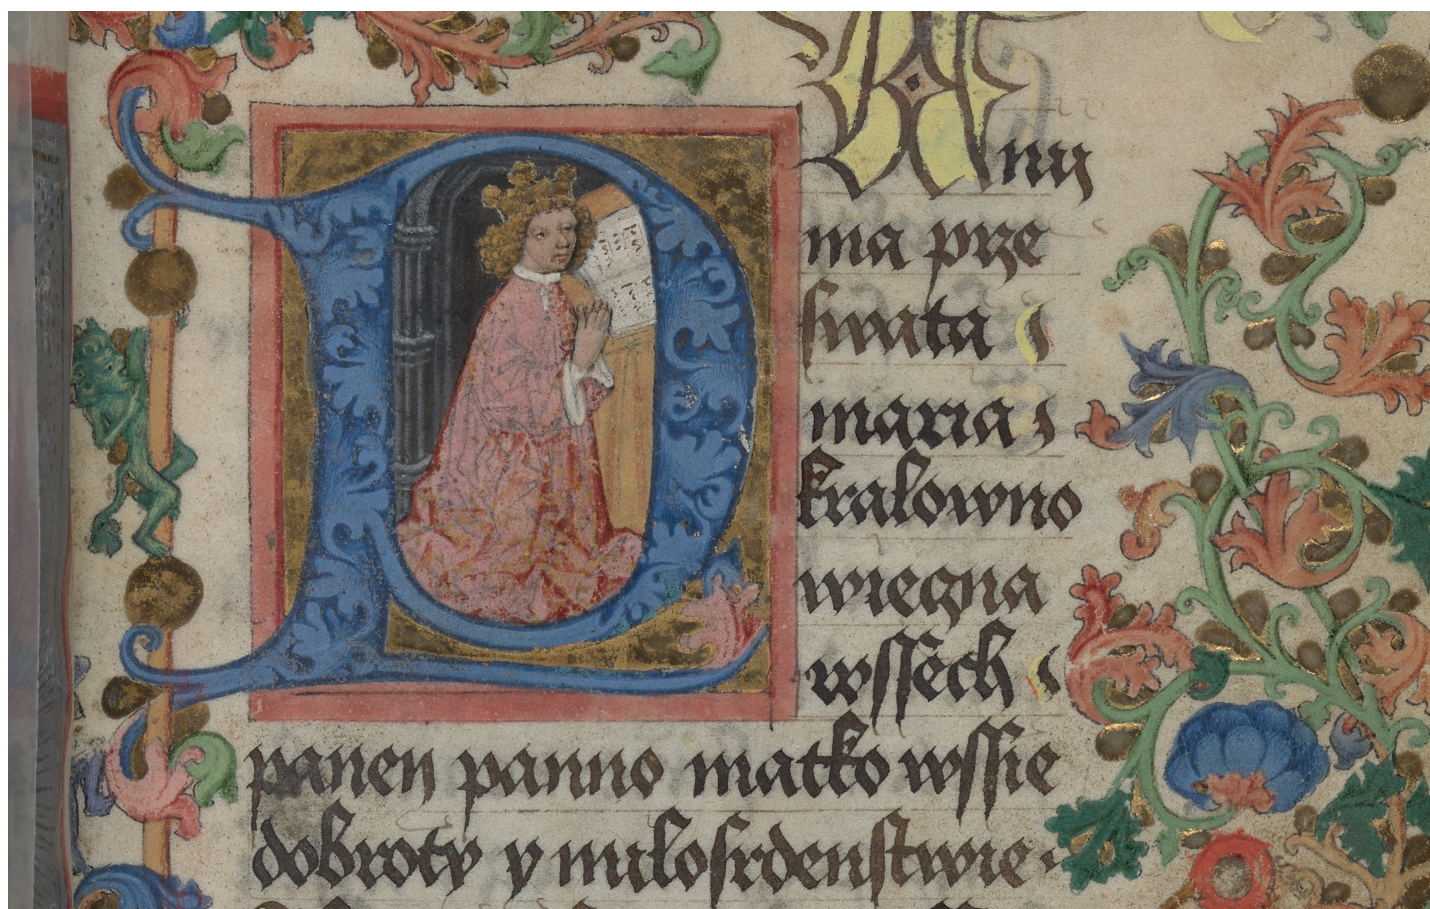 PAny
ma prze
ſwata
maria
kralowno
wieczna
wſſech
panen panno matko wſſie
dobroty y miloſrdenſtwie